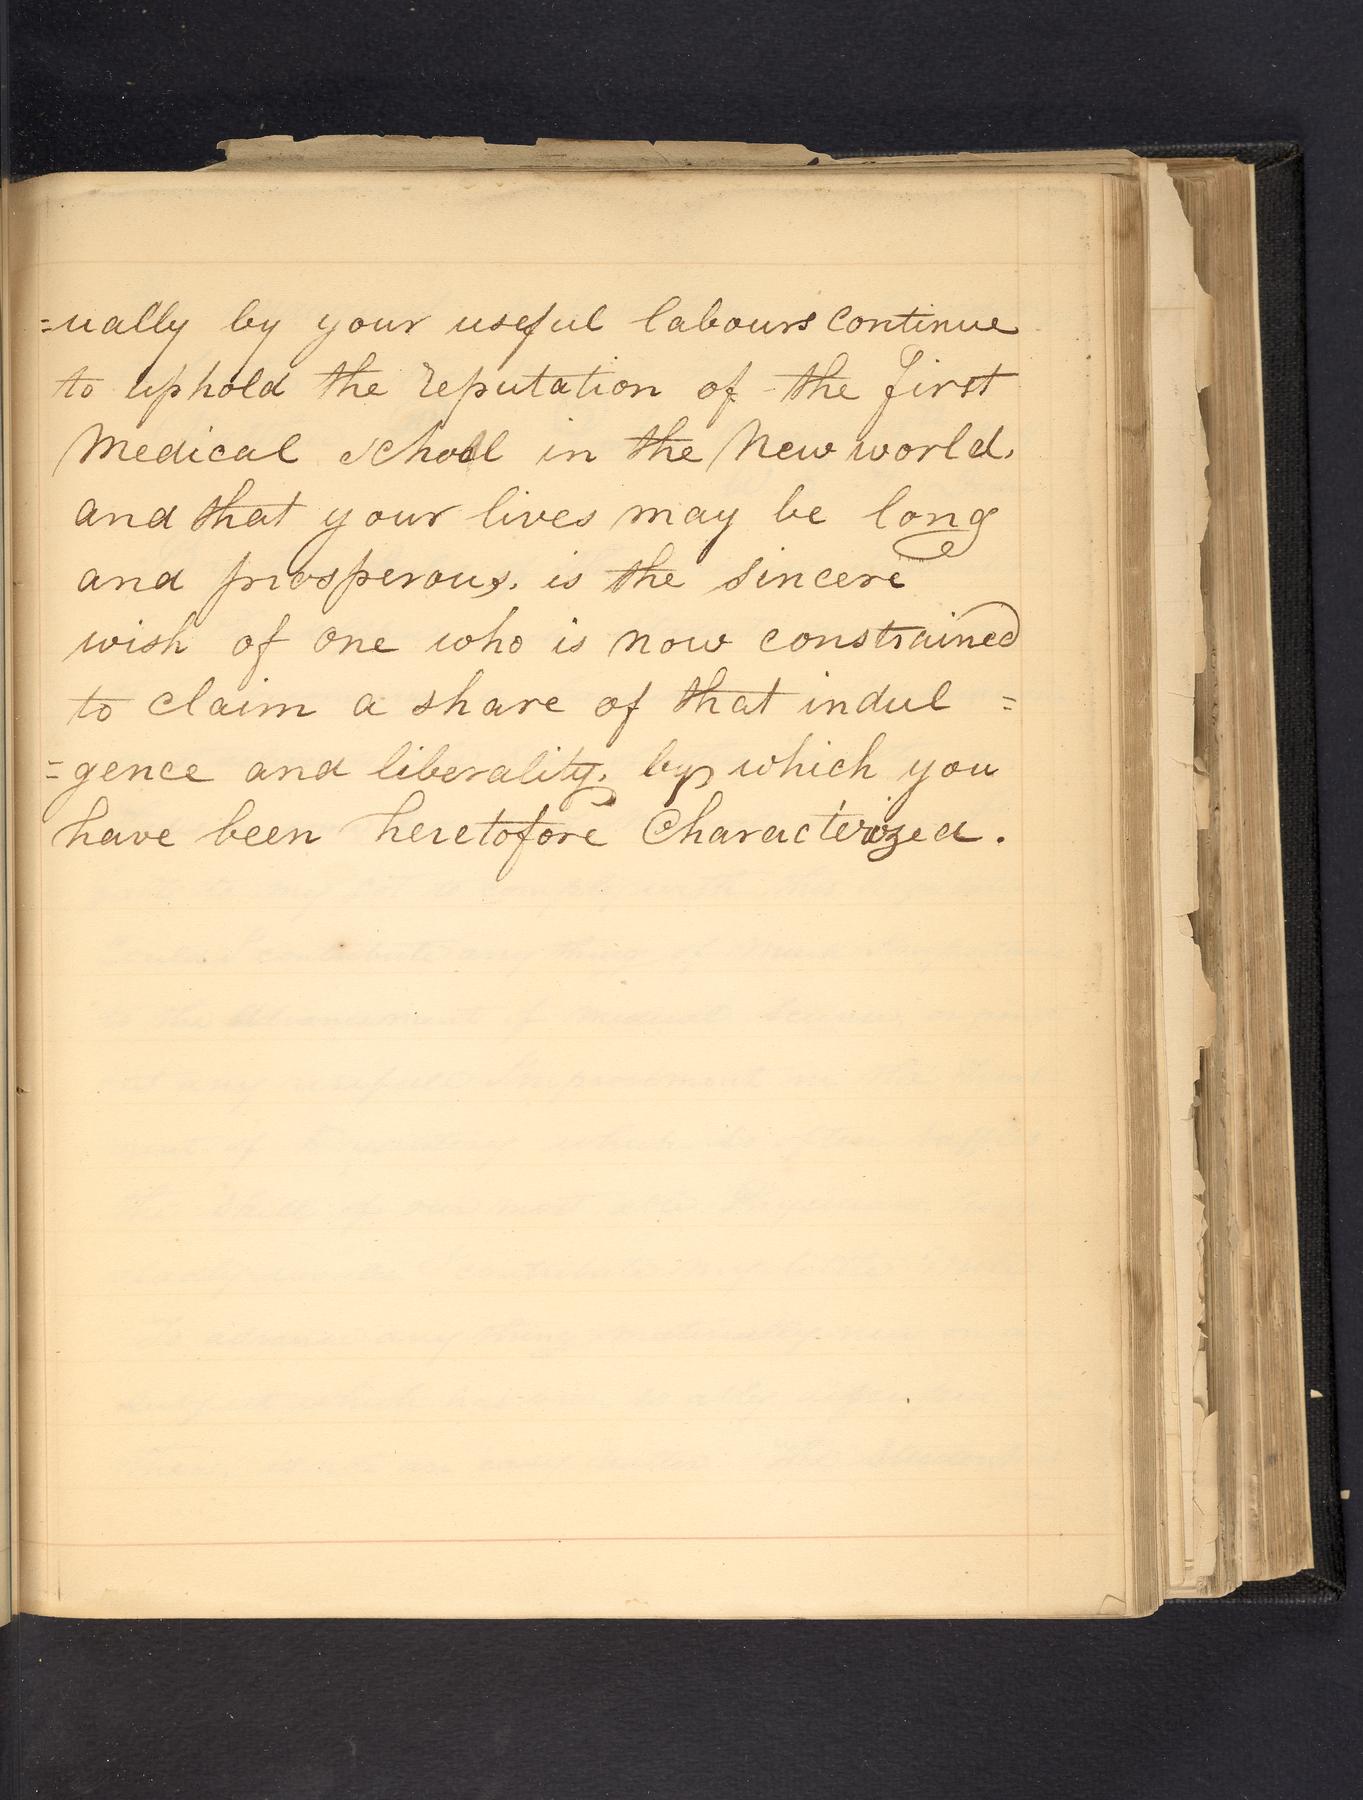 =ually by your useful labours continue
to uphold the reputation of the first
Medical school in the New world.
and that your lives may be long
and prosperous. is the sincere
wish of one who is now constrained
to claim a share of that indul =
=gence and liberality. by which you
have been heretofore Characterized.